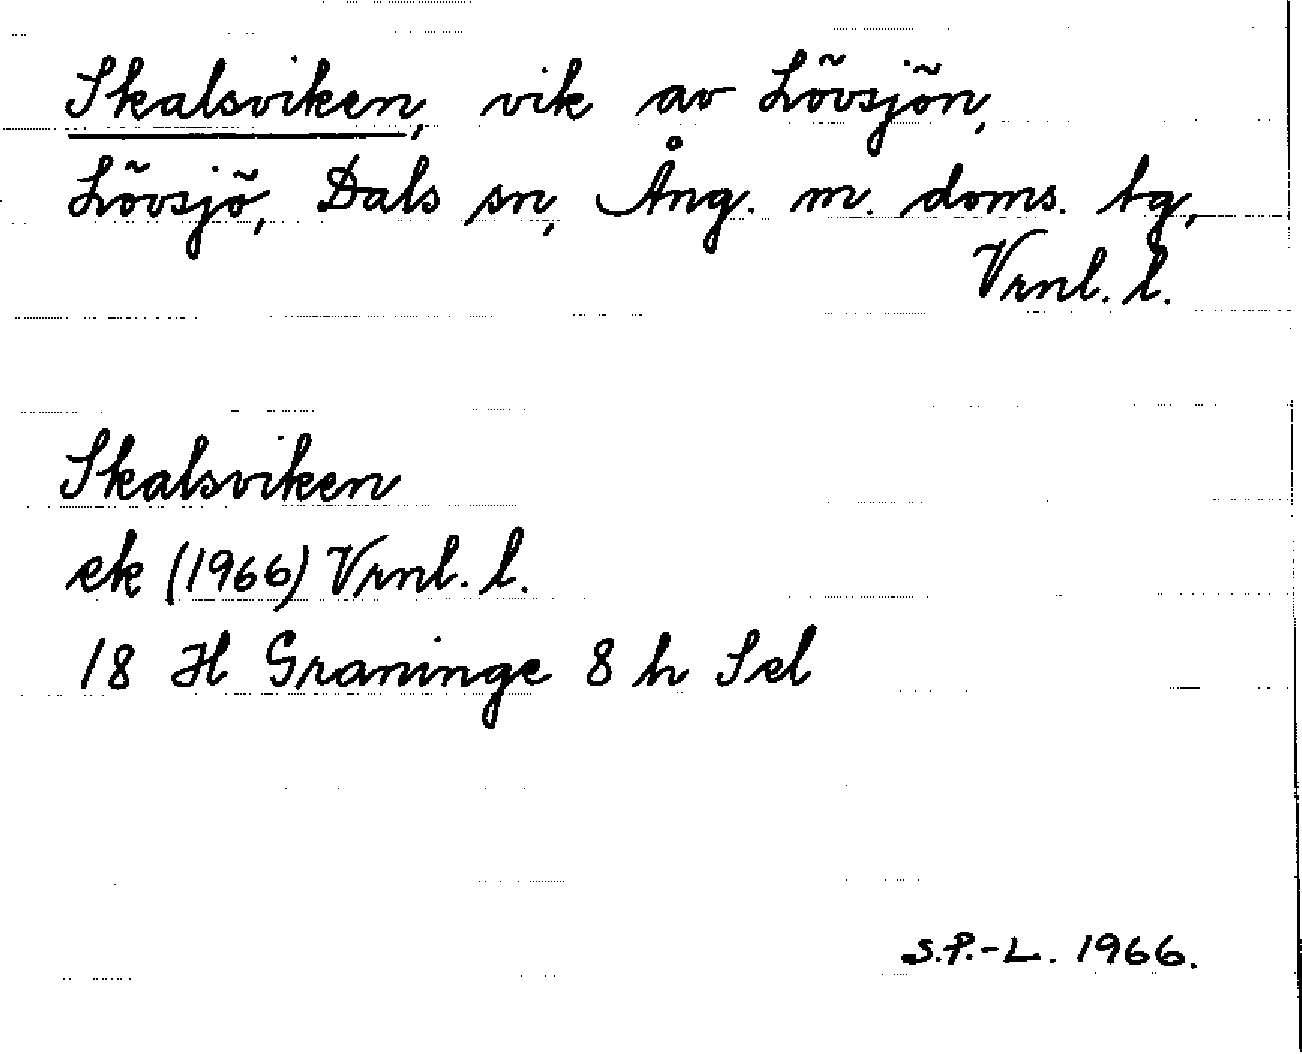 Skalsviken, vik av Lövsjön,
Lövsjö, Dals sn, Ång. m. doms. tg,
Vrnl. l.
Skalsviken
ek (1966) Vrnl. l.
18 H Graninge 8 h Sel
S.P.-L. 1966.